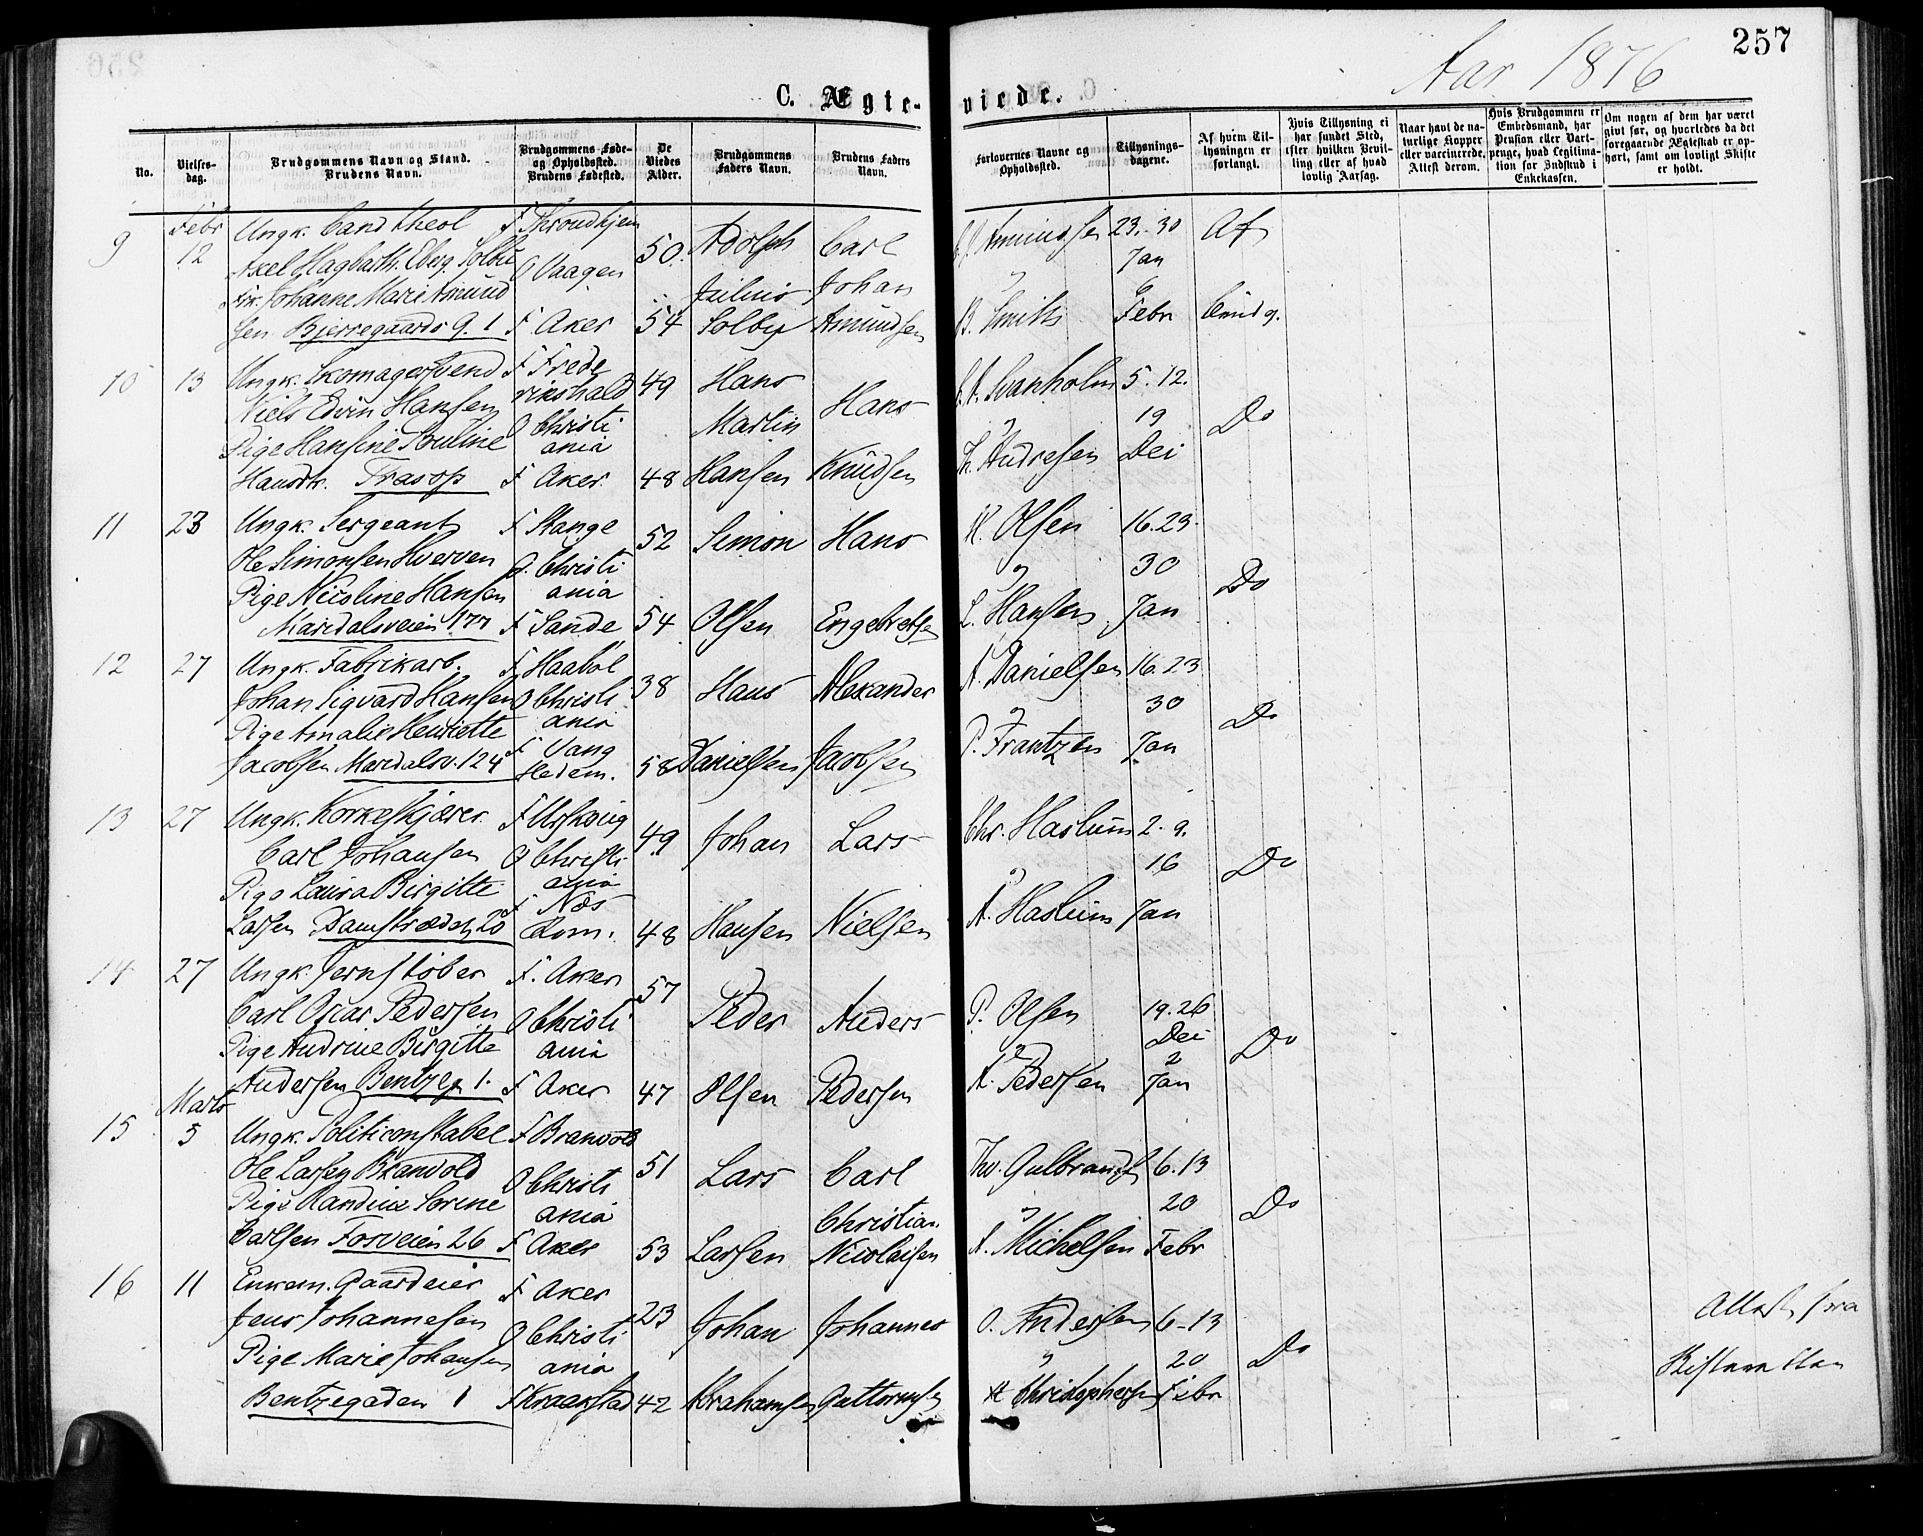 257
Aar 1876
C. Ægte-viede.
No.
Vielses-dag.
Brudgommens Navn og Stand.
Brudens Navn.
Brudgommens Føde-
og Opholdssted.
Brudens Fødested.
De
Viedes
Alder.
Brudgommens
Faders Navn.
Brudens Faders
Navn.
Forlovernes Navne og
Opholdssted.
Tillysnings-
dagene.
Af hvem Til-
lysningen er
forlangt.
Hvis Tillysning ei
har fundet Sted,
efter hvilken Bevil-
ling eller af hvad
lovlig Aarsag.
Naar havt de na-
turlige Kopper
eller vaccinerede,
Attest derom.
Hvis Brudgommen er
Embedsmand, har
Pension eller Vart-
penge, hvad Legitima-
tion for Indskud i
Enkekassen.
Om nogen af dem har været
givt før, og hvorledes da det
foregaaende Ægteskab er op-
hørt, samt om lovligt Skifte
er holdt.
9 Febr 12
Ungk. Cand theol
Axel Hagbarth Eberg Solbu
Johanne Marie Amund
sen Bjerregaards g. 1
F Throndhjem
O Vaagen
F Aker
50 54
Adolph
Julius
Solby
Carl
Johan
Amundsen
Amundsen
B. Smith
23.-30
Jan
6
Febr
Af
Cundg.
10 13
Ungk. Skomagersvend
Niels Edvin Hansen
Pige Hansine Pouline
Hansdtr. Trasop
F Frede
rikshald
O Christi
ania
F Aker
49 48
Hans
Martin
Hansen
Hans
Knudsen
Svanholm
Th. Andresen
5. 12.
19
Dei
Do
11 23
Ungk. Sergeant
Ole Simonsen Hverven
Pige Nicoline Hansen
Maridalsveien 177
F Stange
O. Christi
ania
F Sande
52 54
Simon
Olsen
Hans
Engebretsen
M. Olsen
L. Hansen
16. 23.
30
Jan
Do
12 27
Ungk. Fabrikarb.
Johan Sigvard Hansen
Pige Amalie Henriette
Jacobsen Maridalsv. 124
F Haabøl
O Christi
ania
F Vang
Hedem.
38 58
Hans
Danielsen
Alexander
Jacobsen
A. Danielsen
P. Frantzen
16. 23
30
Jan
Do
13 27
Ungk. Korkeskjærer
Carl Johansen
Pige Laura Birgitte
Larsen Damstrædet 20
F Urskoug
O Christi
ania
F Næs
Rom.
49 48
Johan
Hansen
Lars
Nielsen
Chr. Haslum
A. Haslum
2. 9.
16
Jan
Do
14 27
Ungk. Jernstøber
Carl Oscar Pedersen
Pige Andrine Birgitte
Andersen Bentzeg 1.
F. Aker
O Christi
ania
F Aker
57 47
Peder
Olsen
Anders
Pedersen
P. Olsen
A. Pedersen
19. 26
Dei
2
Jan
Do
15 Marts 5
Ungk. Politiconstabel
Ole Larsen Brandvold
Pige Randine Sorine
Carlsen Fosveien 26
F Brandvold
O Christi
ania
F Aker
51 53
Lars
Larsen
Carl
Christian
Nicolaisen
Thv. Gulbrands
A. Michelsen
6. 13
20
Febr
Do
16 11
Enkem. Gaardeier
Jens Johannesen
Pige Marie Johansen
Bentzegaden 1
F Aker
O Christi
ania
F Kraakstad
23 42
Johan
Abrahamsen
Johannes
Guttormsen
O. Andersen
H Christophersen
6-13
20
Febr
Do
Attest fra